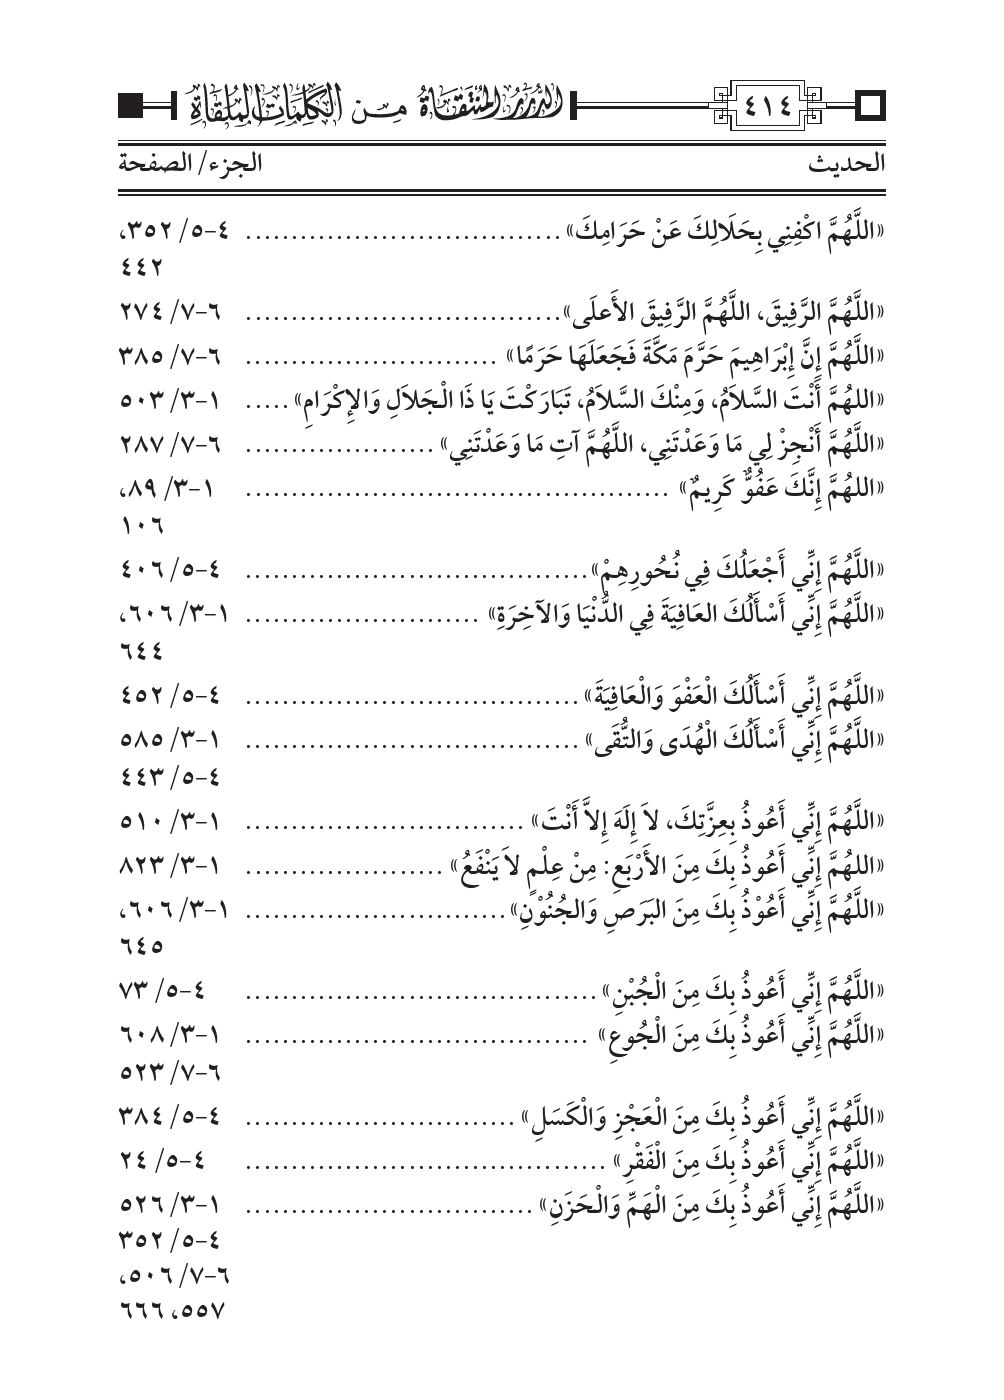 ٤١٤ الدُّرَرُ المُنْتَقَاةُ مِن الكَلِمَاتِ المُلْقَاةِ
الحديث الجزء/ الصفحة
«اللَّهُمَّ اكْفِنِي بِحَلَالِكَ عَنْ حَرَامِكَ» ................................... ٤-٥/ ٣٥٢،
٤٤٢
«اللَّهُمَّ الرَّفِيقَ، اللَّهُمَّ الرَّفِيقَ الأَعلَى» ................................... ٦-٧/ ٢٧٤
«اللَّهُمَّ إِنَّ إِبْرَاهِيمَ حَرَّمَ مَكَّةَ فَجَعَلَهَا حَرَمًا» ............................ ٦-٧/ ٣٨٥
«اللهُمَّ أَنْتَ السَّلاَمُ، وَمِنْكَ السَّلاَمُ، تَبَارَكْتَ يَا ذَا الْجَلاَلِ وَالإِكْرَامِ» ..... ١-٣/ ٥٠٣
«اللَّهُمَّ أَنْجِزْ لِي مَا وَعَدْتَنِي، اللَّهُمَّ آتِ مَا وَعَدْتَنِي» ..................... ٦-٧/ ٢٨٧
«اللهُمَّ إِنَّكَ عَفُوٌّ كَرِيمٌ» ............................................... ١-٣/ ٨٩،
١٠٦
«اللَّهُمَّ إِنِّي أَجْعَلُكَ فِي نُحُورِهِمْ» ...................................... ٤-٥/ ٤٠٦
«اللَّهُمَّ إِنِّي أَسْأَلُكَ العَافِيَةَ فِي الدُّنْيَا وَالآخِرَةِ» .......................... ١-٣/ ٦٠٦،
٦٤٤
«اللَّهُمَّ إِنِّي أَسْأَلُكَ الْعَفْوَ وَالْعَافِيَةَ» ..................................... ٤-٥/ ٤٥٢
«اللَّهُمَّ إِنِّي أَسْأَلُكَ الْهُدَى وَالتُّقَى» ..................................... ١-٣/ ٥٨٥
٤-٥/ ٤٤٣
«اللَّهُمَّ إِنِّي أَعُوذُ بِعِزَّتِكَ، لاَ إِلَهَ إِلاَّ أَنْتَ» ............................... ١-٣/ ٥١٠
«اللهُمَّ إِنِّي أَعُوذُ بِكَ مِنَ الأَرْبَعِ: مِنْ عِلْمٍ لاَ يَنْفَعُ» ...................... ١-٣/ ٨٢٣
«اللَّهُمَّ إِنِّي أَعُوْذُ بِكَ مِنَ البَرَصِ وَالجُنُوْنِ» ............................. ١-٣/ ٦٠٦،
٦٤٥
«اللَّهُمَّ إِنِّي أَعُوذُ بِكَ مِنَ الْجُبْنِ» ....................................... ٤-٥/ ٧٣
«اللَّهُمَّ إِنِّي أَعُوذُ بِكَ مِنَ الْجُوعِ» ...................................... ١-٣/ ٦٠٨
٦-٧/ ٥٢٣
«اللَّهُمَّ إِنِّي أَعُوذُ بِكَ مِنَ الْعَجْزِ وَالْكَسَلِ» .............................. ٤-٥/ ٣٨٤
«اللَّهُمَّ إِنِّي أَعُوذُ بِكَ مِنَ الْفَقْرِ» ........................................ ٤-٥/ ٢٤
«اللَّهُمَّ إِنِّي أَعُوذُ بِكَ مِنَ الْهَمِّ وَالْحَزَنِ» ................................ ١-٣/ ٥٢٦
٤-٥/ ٣٥٢
٦-٧/ ٥٠٦،
٥٥٧، ٦٦٦